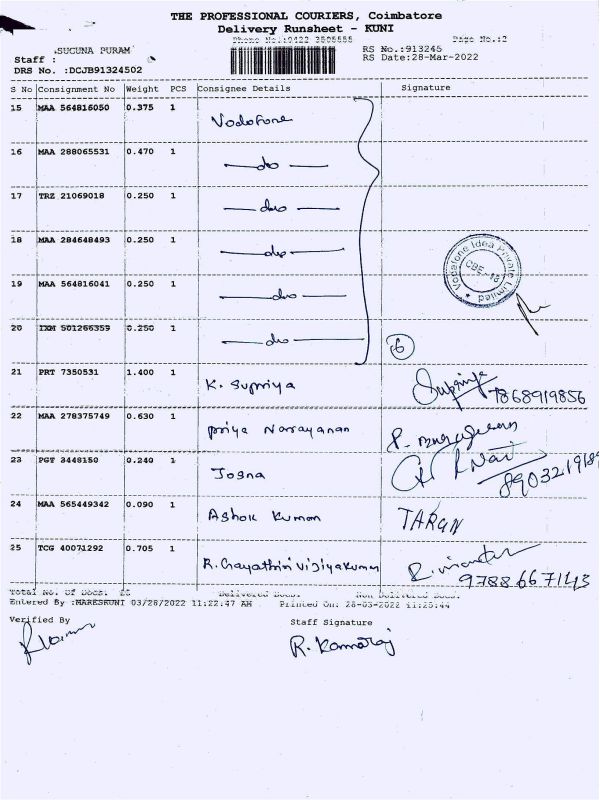 THE PROFESSIONAL COURIERS, Coimbatore
Delivery Runsheet - KUNI
Phone No.:0422 3505555 Page No.:2
SUCUNA PURAM RS No.:913245
Staff : RS Date:28-Mar-2022
DRS No. :DCJB91324502
S No Consignment No Weight PCS Consignee Details Signature
15 MAA 564816050 0.375 1 Vodofone
16 MAA 288065531 0.470 1 — do —
17 TRZ 21069018 0.250 1 — do —
18 MAA 284648493 0.250 1 — do —
19 MAA 564816041 0.250 1 — do —
20 IXM 501266359 0.250 1 — do — 6
Vodafone Idea Private Limited
CBE-18
21 PRT 7350531 1.400 1 K. Supriya Supriya 7868919856
22 MAA 278375749 0.630 1 Priya Narayanan
23 PGT 3448150 0.240 1 Josna 890321918
24 MAA 565449342 0.090 1 Ashok Kumar TARUN
25 TCG 40071292 0.705 1 R. Gayathiri Vijiyakumar 9788667143
Total No. Of Docs: 25 Delivered Docs: Non Delivered Docs:
Entered By :MARESKUNI 03/28/2022 11:22:47 AM Printed On: 28-03-2022 11:25:44
Verified By Staff Signature
R. Kamaraj